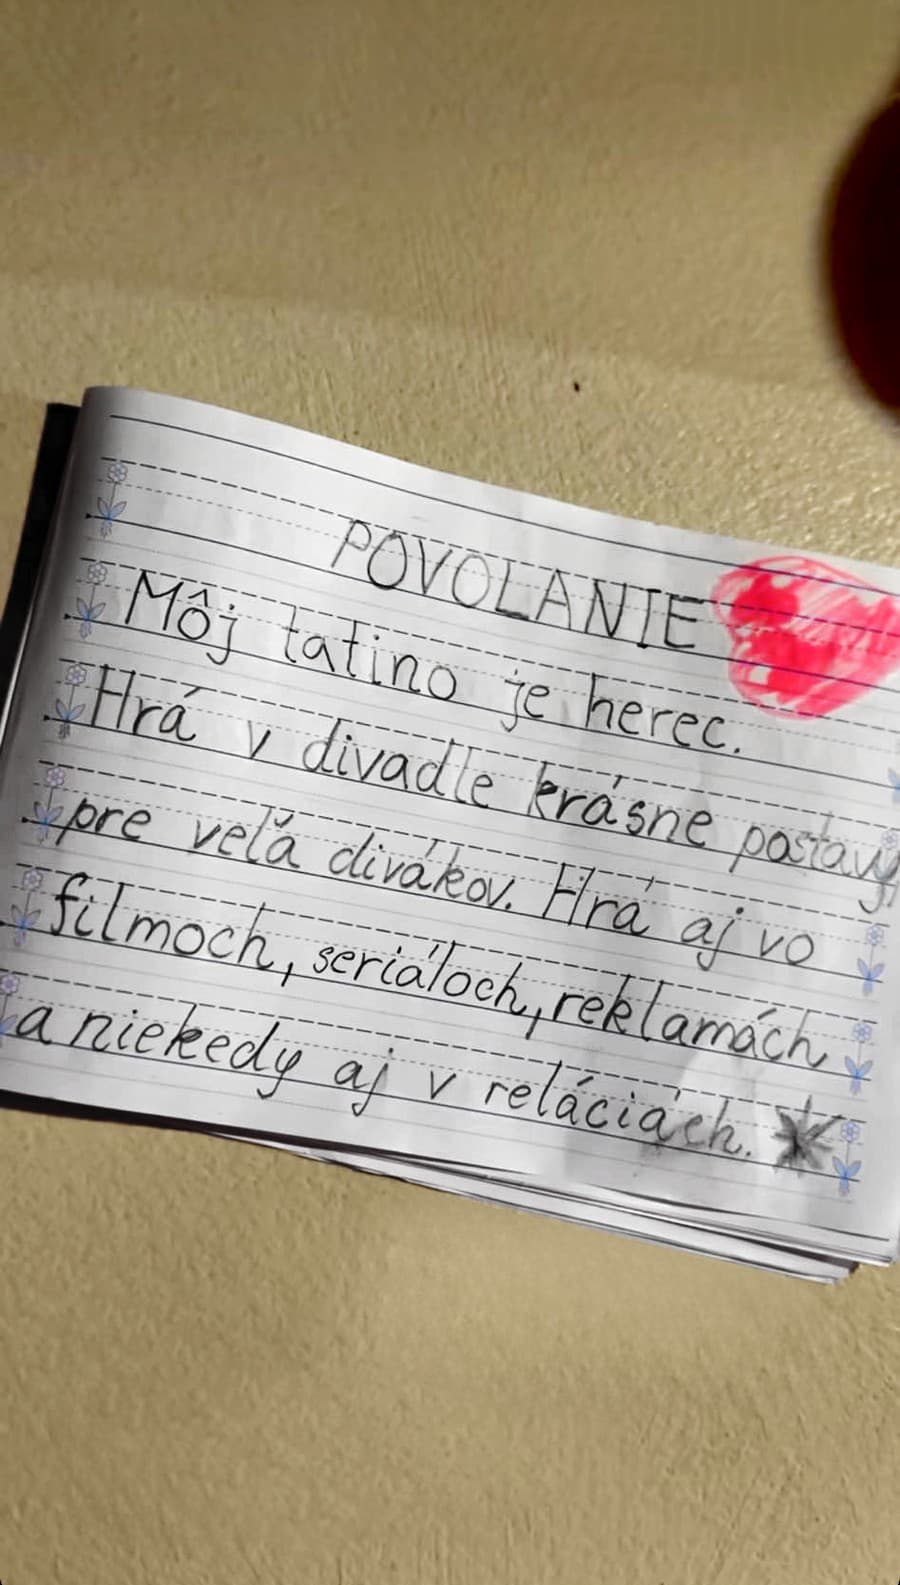 POVOLANIE
Môj tatino je herec.
Hrá v divadle krásne postavy
pre veľa divákov. Hrá aj vo
filmoch, seriáloch, reklamách
a niekedy aj v reláciách.